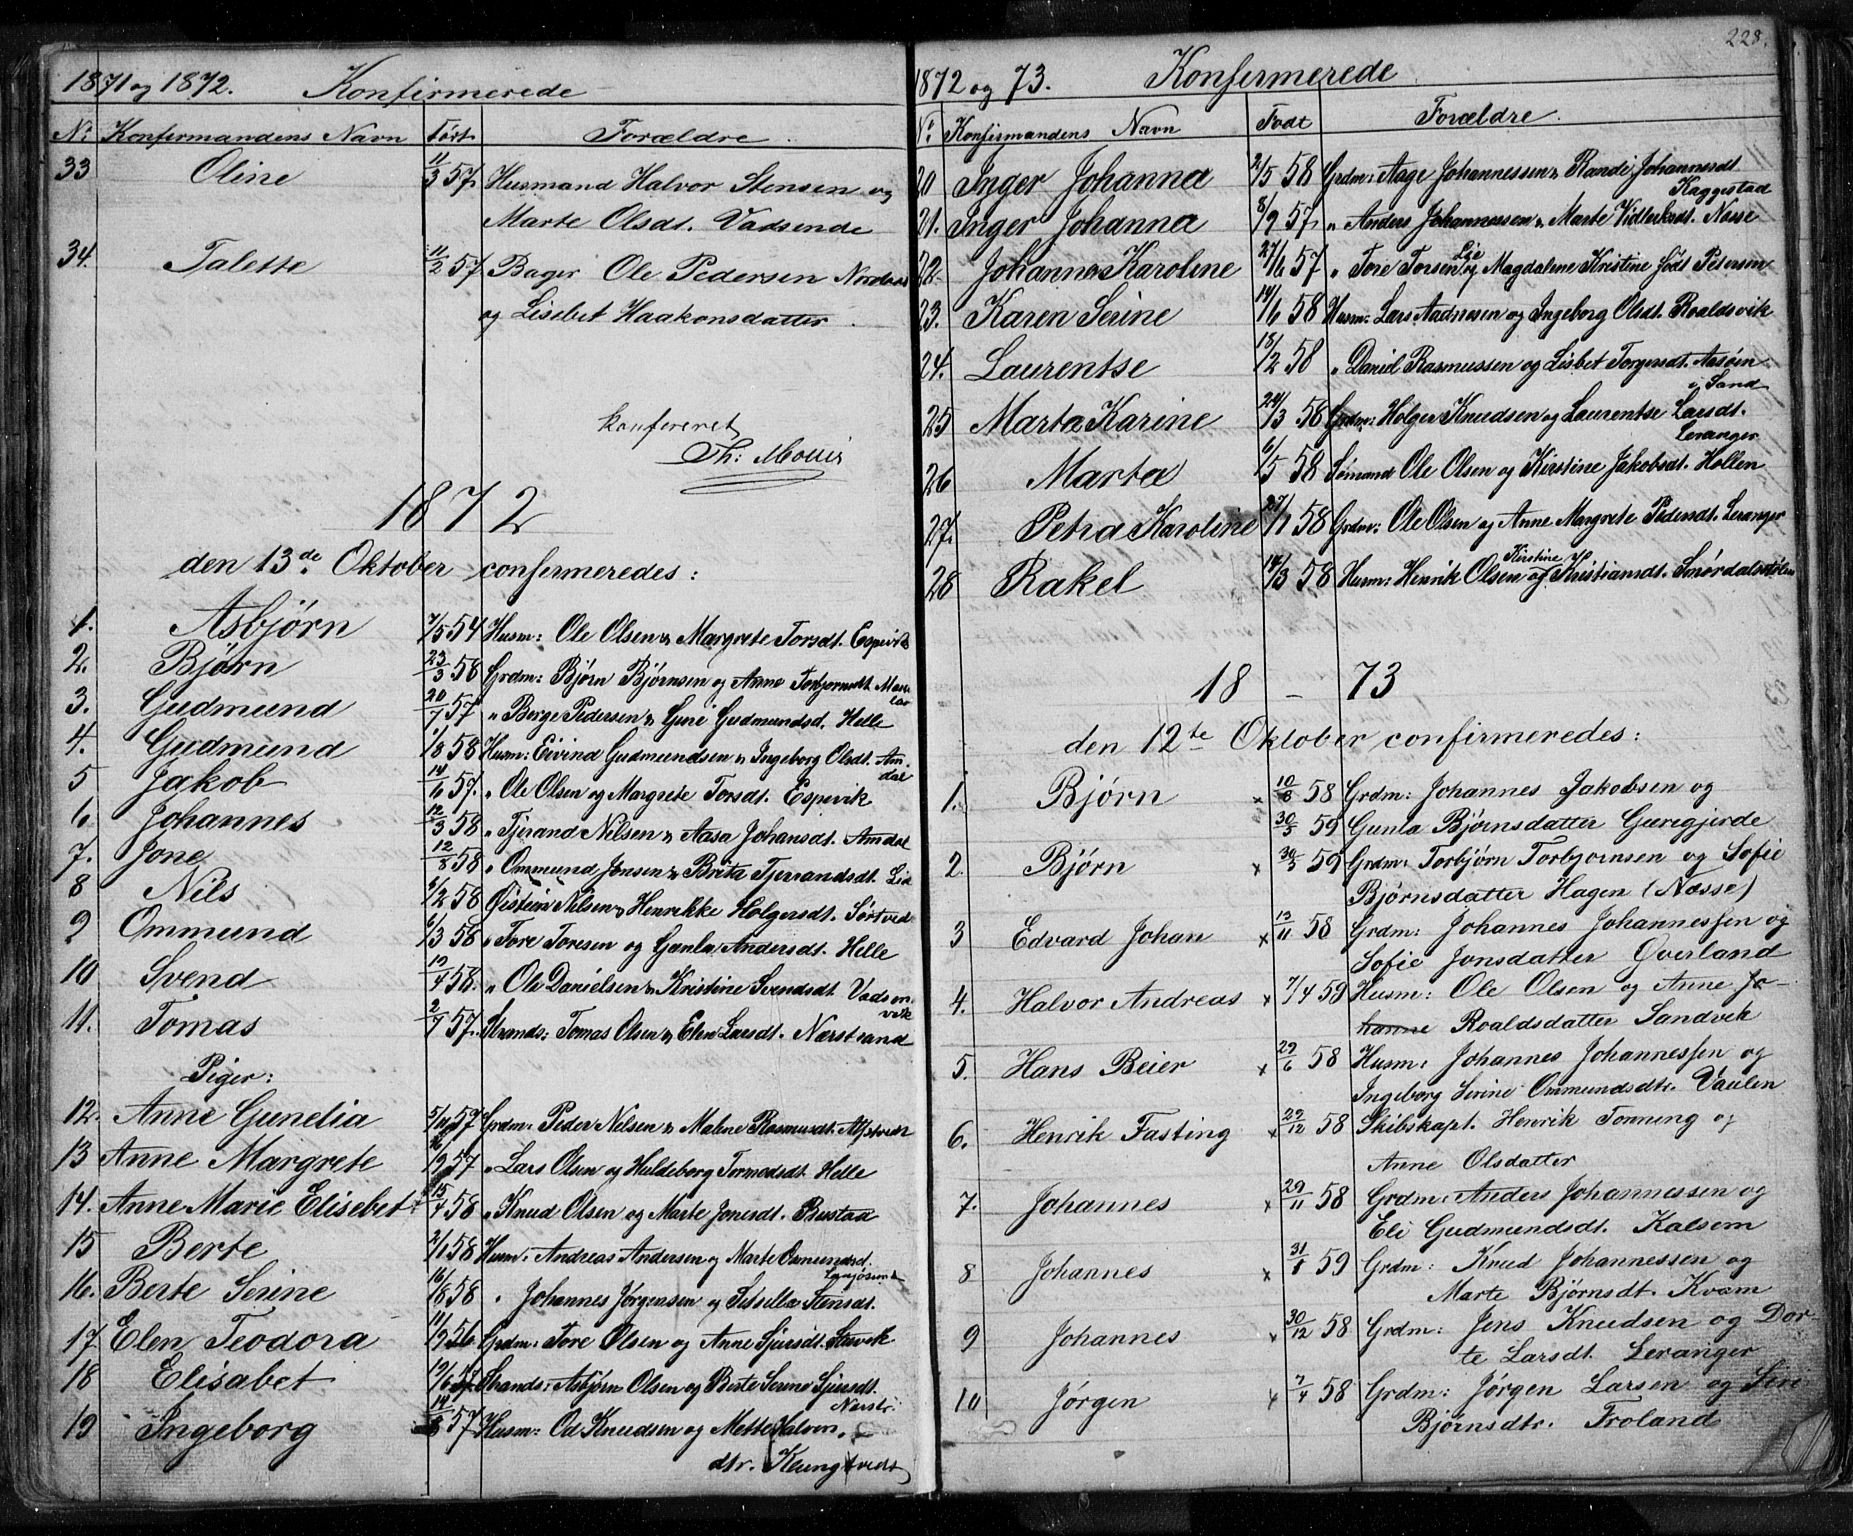 1871 og 1872. Konfirmerede
No Konfirmandens Navn Født Forældre.
33 Oline 11/3 57 Husmand Halvor Stensen og
Marte Olsdt. Vadsende
34. Talette 11/2 57 Bager Ole Pedersen
og Lisebet Haakonsdatter.
konfereret
1872
den 13de Oktober confirmeredes:
1. Asbjørn 7/5 54 Husm: Ole Olsen & Margrete Torsdt. Espevik
2. Bjørn 23/3 58 Grdm: Bjørn Bjørnsen og Anne
3. Gudmund 20/7 57 " Børge Pedersen & Guri Gudmundsd. Helle
4. Gudmund 1/8 58 Husm: Eivind Gudmundsen & Ingeborg Olsdt. Am-
dal
5 Jakob 14/6 57. " Ole Olsen og Margrete Torsdt. Espevik
6 Johannes 12/3 58 " Tjerand Nilsen & Aasa Johansdt. Amdal
7. Jone 12/8 58 " Ommund Jonsen & Brita Tjerrandsdt. Lid
8 Nils 3/2 58 Øistein Nilsen & Henrikke Holgersdt. Sørtved
9 Ommund 6/3 58 " Tore Toresen og Gunla Andersdt. Helle
10 Svend 19/4 58. " Ole Danielsen & Kristine Svendsdt. Vadsen-
vik
11. Tomas 2/7 57. Strands: Tomas Olsen & Elen Larsdt. Nærstrand
Piger:
12. Anne Gunelia 5/11 57 Grdm: Peder Nilsen & Malene Rasmusdt.
13 Anne Margrete 57 " Lars Olsen og Huldeborg Tormodsdt. Helle
14. Anne Marie Elisebet 15/4 58 " Knud Olsen og Marte Jonesdt. Bustad
15 Berte 2/1 58 Husm: Andreas Andersen og Marte Osmundsd.
16. Berte Serine 16/8 58 " Johannes Jørgensen og Stensdt.
17 Elen Teodora 11/9 56 Grdm: Tore Olsen og Anne Sjursdt. Stavek
18 Elisabet 19/6 58 Strands: Asbjørn Olsen og Berte Serine Sjursdt.
Nærstr:
19 Ingeborg 14/8 57 Husm: Od Knudsen og Mette Halvor-
dtr. Kungtvedt
228.
1872 og 73. Konfirmerede
No Konfirmandens Navn Født Forældre.
20 Inger Johanna 2/5 58 Grdm: Aage Johannessen & Randi Johannesdt.
Kaggestad
21. Inger Johanna 8/9 57 " Anders Johannessen & Marte Næsse
22. Johanna Karoline 27/6 57 " Tore Torsen Lie og Magdalene Kristine født Petersen
23. Karen Serine 14/6 58 Husm: Lars Aadnesen og Ingeborg Olsdt. Roaldsvik
24. Laurentse 18/2 58 " Daniel Rasmussen og Lisbet Torgersdt. Aasøen
i Sand
25 Marta Karine 24/3 58 Grdm: Holger Knudsen og Laurentse Larsdt.
Leranger
26 Marta 6/5 58 Sømand Ole Olsen og Kirstine Jakobsdt. Hollen
27. Petra Karoline 27/1 58 Grdm: Ole Olsen og Anne Margrete Pedersdt. Leranger
28 Rakel 14/3 58 Husm: Henrik Olsen og Kirstine Kristiansdt. Smørdalsstølen
18 - 73
den 12te Oktober confirmeredes:
1. Bjørn × 10/8 58 Grdm: Johannes Jakobsen og
30/3 59 Gunla Bjørnsdatter Guregjerde
2. Bjørn × 30/3 59 Grdm: Torbjørn Torbjørnsen og Sofie
Bjørnsdatter Hagen (Næsse)
3 Edvard Johan × 12/11 58 Grdm: Johannes Johannessen og
Sofie Jonsdatter Øverland
4. Halvor Andreas × 7/4 59 Husm: Ole Olsen og Anne Jo-
hanne Roaldsdatter Sandvik
5. Hans Beier × 29/6 58 Husm: Johannes Johannessen og
Ingeborg Serine Ommundsdtr. Vaulen
6. Henrik Fasting × 29/12 58 Skibskapt. Henrik Tonning og
Anne Olsdatter
7. Johannes × 29/11 58 Grdm: Anders Johannessen og
Eli Gudmundsdt. Kalsem
8 Johannes × 31/1 59 Grdm: Knud Johannessen og
Marte Bjørnsdt. Kvam
9 Johannes × 30/12 58 Grdm: Jens Knudsen og Dor-
te Larsdt. Leranger
10 Jørgen × 7/4 58 Grdm: Jørgen Larsen og Siri
Bjørnsdtr. Froland